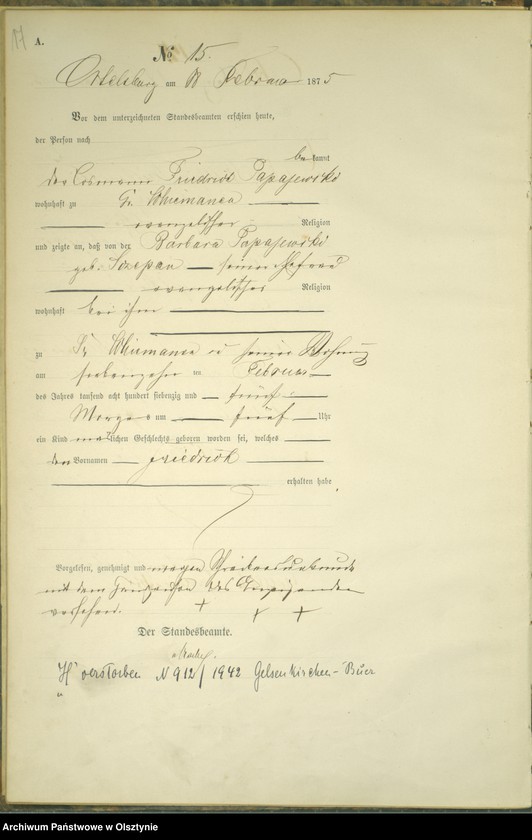 17
A.
№ 15.
Ortelsburg am 18 Februar 1875
Vor dem unterzeichneten Standesbeamten erschien heute,
der Person nach
bekannt
der Losmann Friedrich Papajewski
wohnhaft zu Gr.
evangelischer Religion
und zeigte an, daß von der Barbara Papajewski
geb. Sczepan seiner Ehefrau
evangelischer Religion
wohnhaft bei ihm
zu Gr. in seiner Wohnung
am siebenzehn ten Februar
des Jahres tausend acht hundert siebenzig und fünf
Morgens um fünf Uhr
ein Kind männlichen Geschlechts geboren worden sei, welches
den Vornamen Friedrich
erhalten habe.
Vorgelesen, genehmigt und wegen Schreibensunkunde
mit dem Handzeichen des Anzeigenden
versehen. + + +
Der Standesbeamte.
H verstorben N 912/1942 Gelsenkirchen-Buer
Archiwum Państwowe w Olsztynie